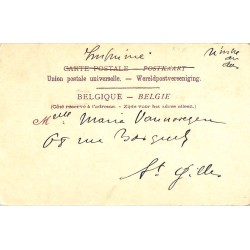 Imprimé
CARTE POSTALE — POSTKAART
Union postale universelle. — Wereldpostvereeniging.
BELGIQUE — BELGIE
(Côté réservé à l'adresse. — Zijde voor het adres alleen.)
Melle Marie Vannoregen
68 rue
St Gilles